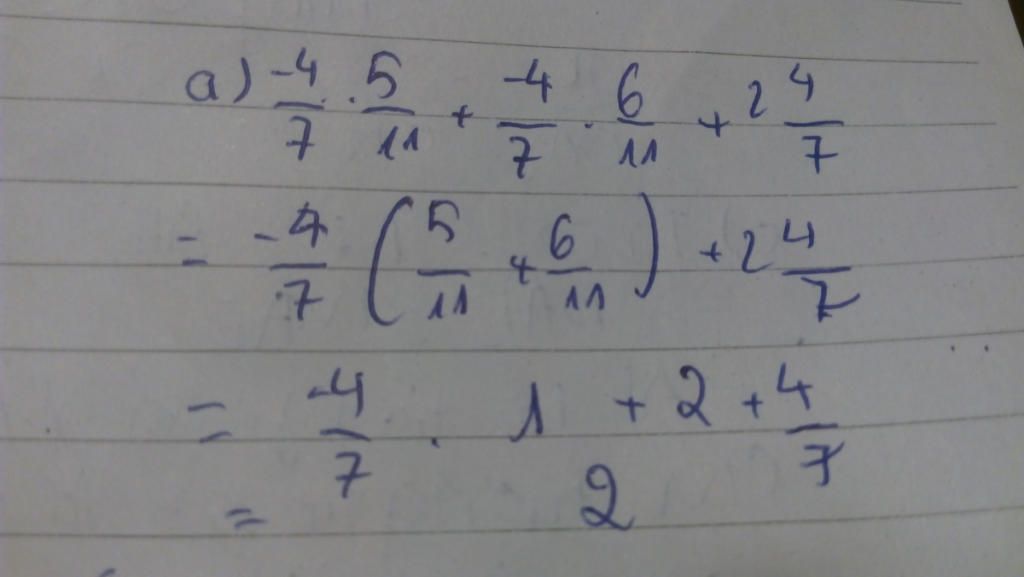 a) -4/7 . 5/11 + -4/7 . 6/11 + 2 4/7
= -4/7 (5/11 + 6/11) + 2 4/7
= -4/7 . 1 + 2 + 4/7
= 2